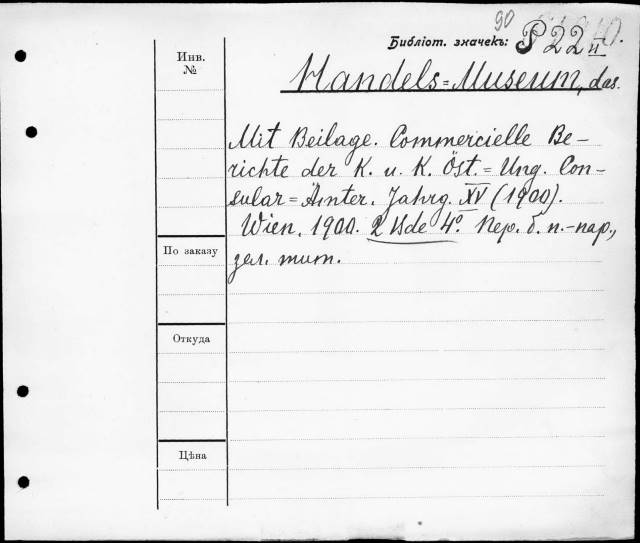 90
Библіот. значекъ: P 22 II
Инв.
№
Handels=Museum, das.
Mit Beilage. Commercielle Be-
richte der K. u. K. Öst.=Ung. Con-
sular=Ämter. Jahrg. XV (1900).
Wien, 1900. 2 Bde 4º. Пер. б. п.-пар.,
зел. тит.
По заказу
Откуда
Цѣна